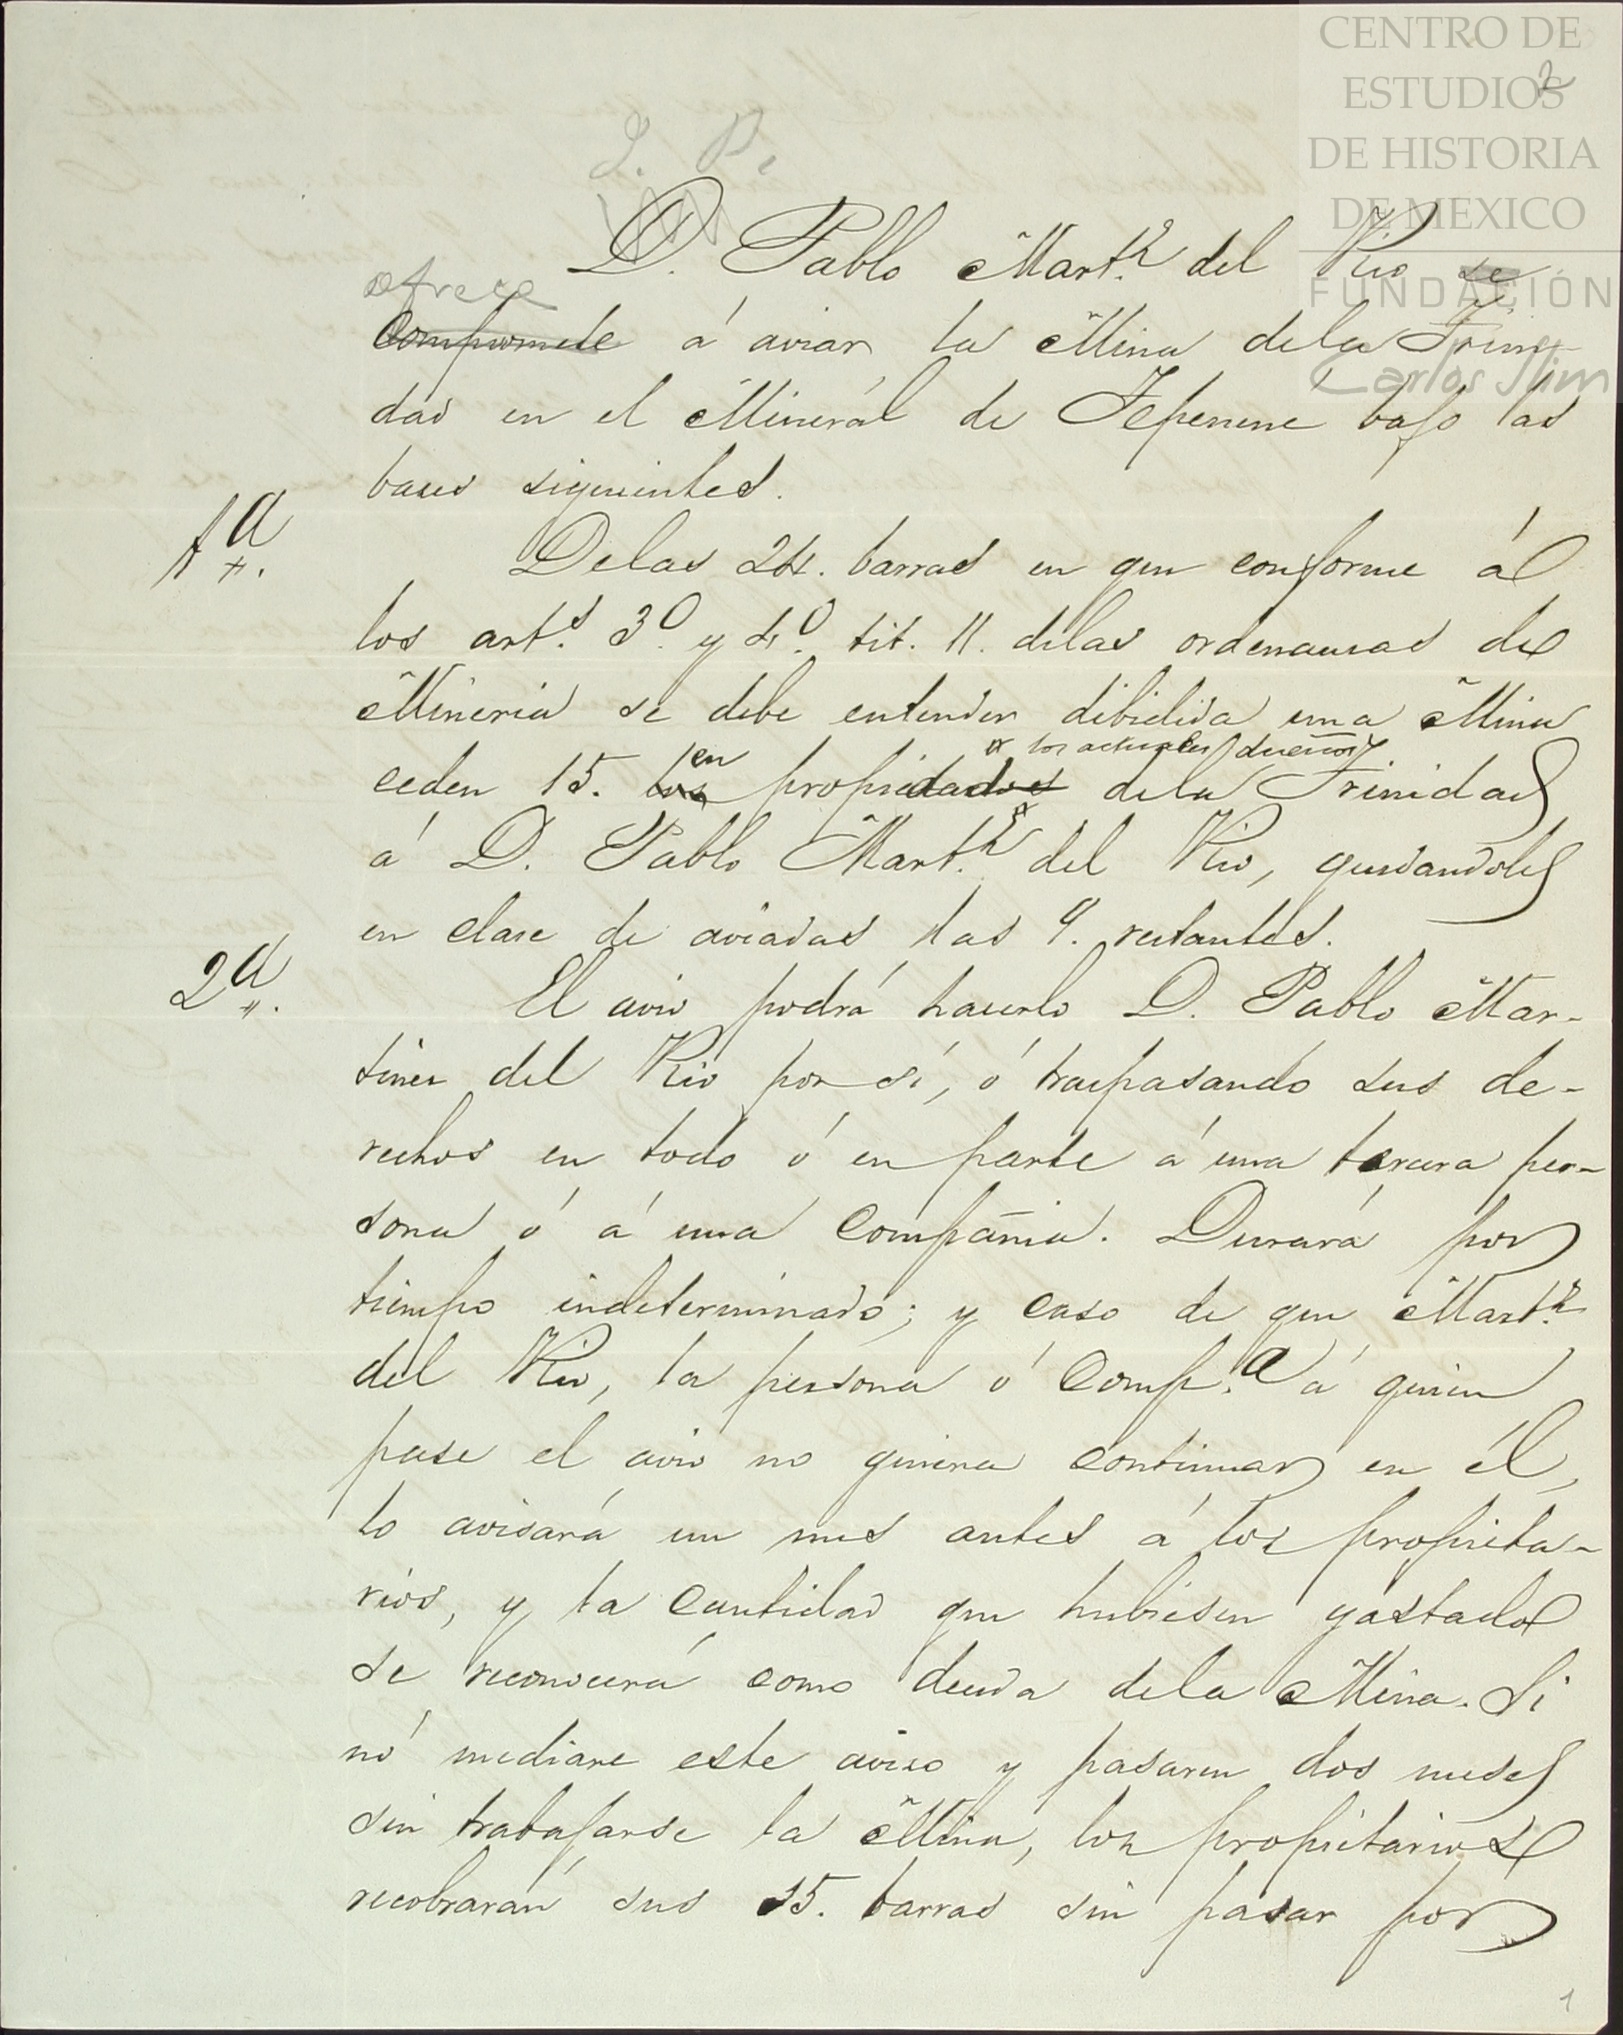 CENTRO DE
ESTUDIOS
DE HISTORIA
DE MEXICO
FUNDACIÓN
Carlos Slim
2
D. Pablo Mart.z del Rio se
ofrece
compromete á aviar la Mina dela Trini-
dad en el Mineral de Tepenene bajo las
bases siguientes.
1a.
Delas 24. barras en que conforme á
los art.s 3o. y 4o. tit. 11. delas ordenanzas de
Mineria se debe entender dibidida una Mina
en los actuales dueños
ceden 15. los propiedades dela Trinidad
á D. Pablo Mart.z del Rio, quedandoles
en clase de aviadas las 9. restantes.
2a.
El avio podrá hacerlo D. Pablo Mar-
tinez del Rio por sí, ó traspasando sus de-
rechos en todo ó en parte á una tercera per-
sona ó á una Compañia. Durará por
tiempo indeterminado; y caso de que Mart.z
del Rio, la persona ó Comp.a á quien
pase el avio no quiera continuar en él,
lo avisará un mes antes á los propieta-
rios, y la cantidad que hubiesen gastado
se reconocerá como deuda dela Mina. Si
nó mediare este aviso y pasaren dos meses
sin trabajarse la Mina, los propietarios
recobrarán sus 15. barras sin pasar por
1